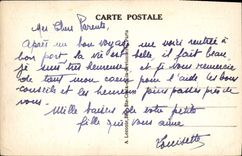 CARTE POSTALE
Mes Chers Parents.
Après un bon voyage me voici rentrée à
bon port la vie est belle, il fait beau,
je suis très heureuse et je vous remercie
de tout mon coeur pour l'aide les bons
conseils et les heures passées près de
vous.
Mille baisers de votre petite
fille qui vous aime
Louisette